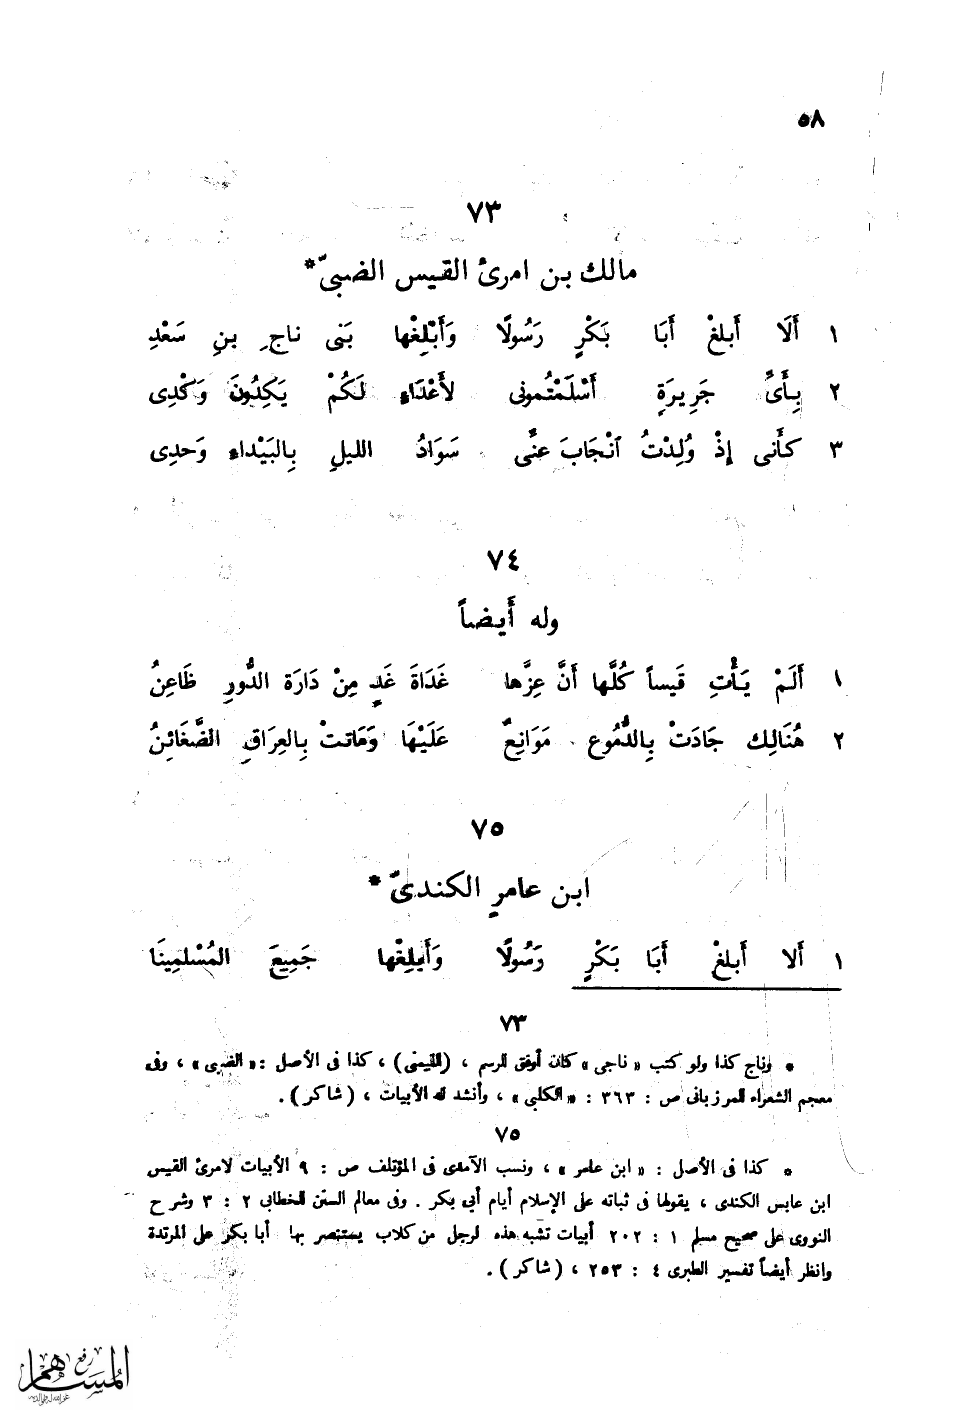 ٥٨
٧٣
مالك بن امرئ القيس الضبىّ*
١ أَلَا أَبلغْ أَبَا بَكْرٍ رَسُولًا وَأَبْلِغْها بَنى ناجِ بنِ سَعْدِ
٢ بِأَىِّ جَرِيرَةٍ أَسْلَمْتُمونى لأَعْدَاءٍ لَكُمْ يَكِدُونَ وَكْدِى
٣ كأَنى إِذْ وُلِدْتُ ٱنْجَابَ عنَّى سَوَادُ الليلِ بِالبَيْداءِ وَحدِى
٧٤
وله أَيضاً
١ أَلَمْ يَأْتِ قَيساً كُلَّها أَنَّ عِزَّها غَدَاةَ غَدٍ مِنْ دَارَة الدُّورِ ظَاعِنُ
٢ هُنَالِكَ جَادَتْ بِالدُّمُوعِ مَوَانِعٌ عَلَيْهَا وَمَاتتْ بِالعِرَاقِ الضَّغَائِنُ
٧٥
ابن عامرٍ الكندىّ *
١ أَلا أَبلغْ أَبَا بَكْرٍ رَسُولًا وَأَبلِغْها جَمِيعَ المُسْلمِينَا
٧٣
* وناج كذا ولو كتب « ناجى » كان أوفق للرسم ، (القيمنى) ، كذا فى الأصل : « الضبى » ، وفى
معجم الشعراء للمرزبانى ص : ٣٦٣ : « الكلبى » ، وأنشد له الأبيات ، ( شاكر ) .
٧٥
* كذا فى الأصل : « ابن عامر » ، ونسب الآمدى فى المؤتلف ص : ٩ الأبيات لامرئ القيس
ابن عابس الكندى ، يقولها فى ثباته على الإسلام أيام أبى بكر . وفى معالم السنن للخطابى ٢ : ٣ وشرح
النووى على صحيح مسلم ١ : ٢٠٢ أبيات تشبه هذه لرجل من كلاب يستنصر بها أبا بكر على المرتدة
وانظر أيضاً تفسير الطبرى ٤ : ٢٥٣ ، ( شاكر ) .
رفع
المساهم